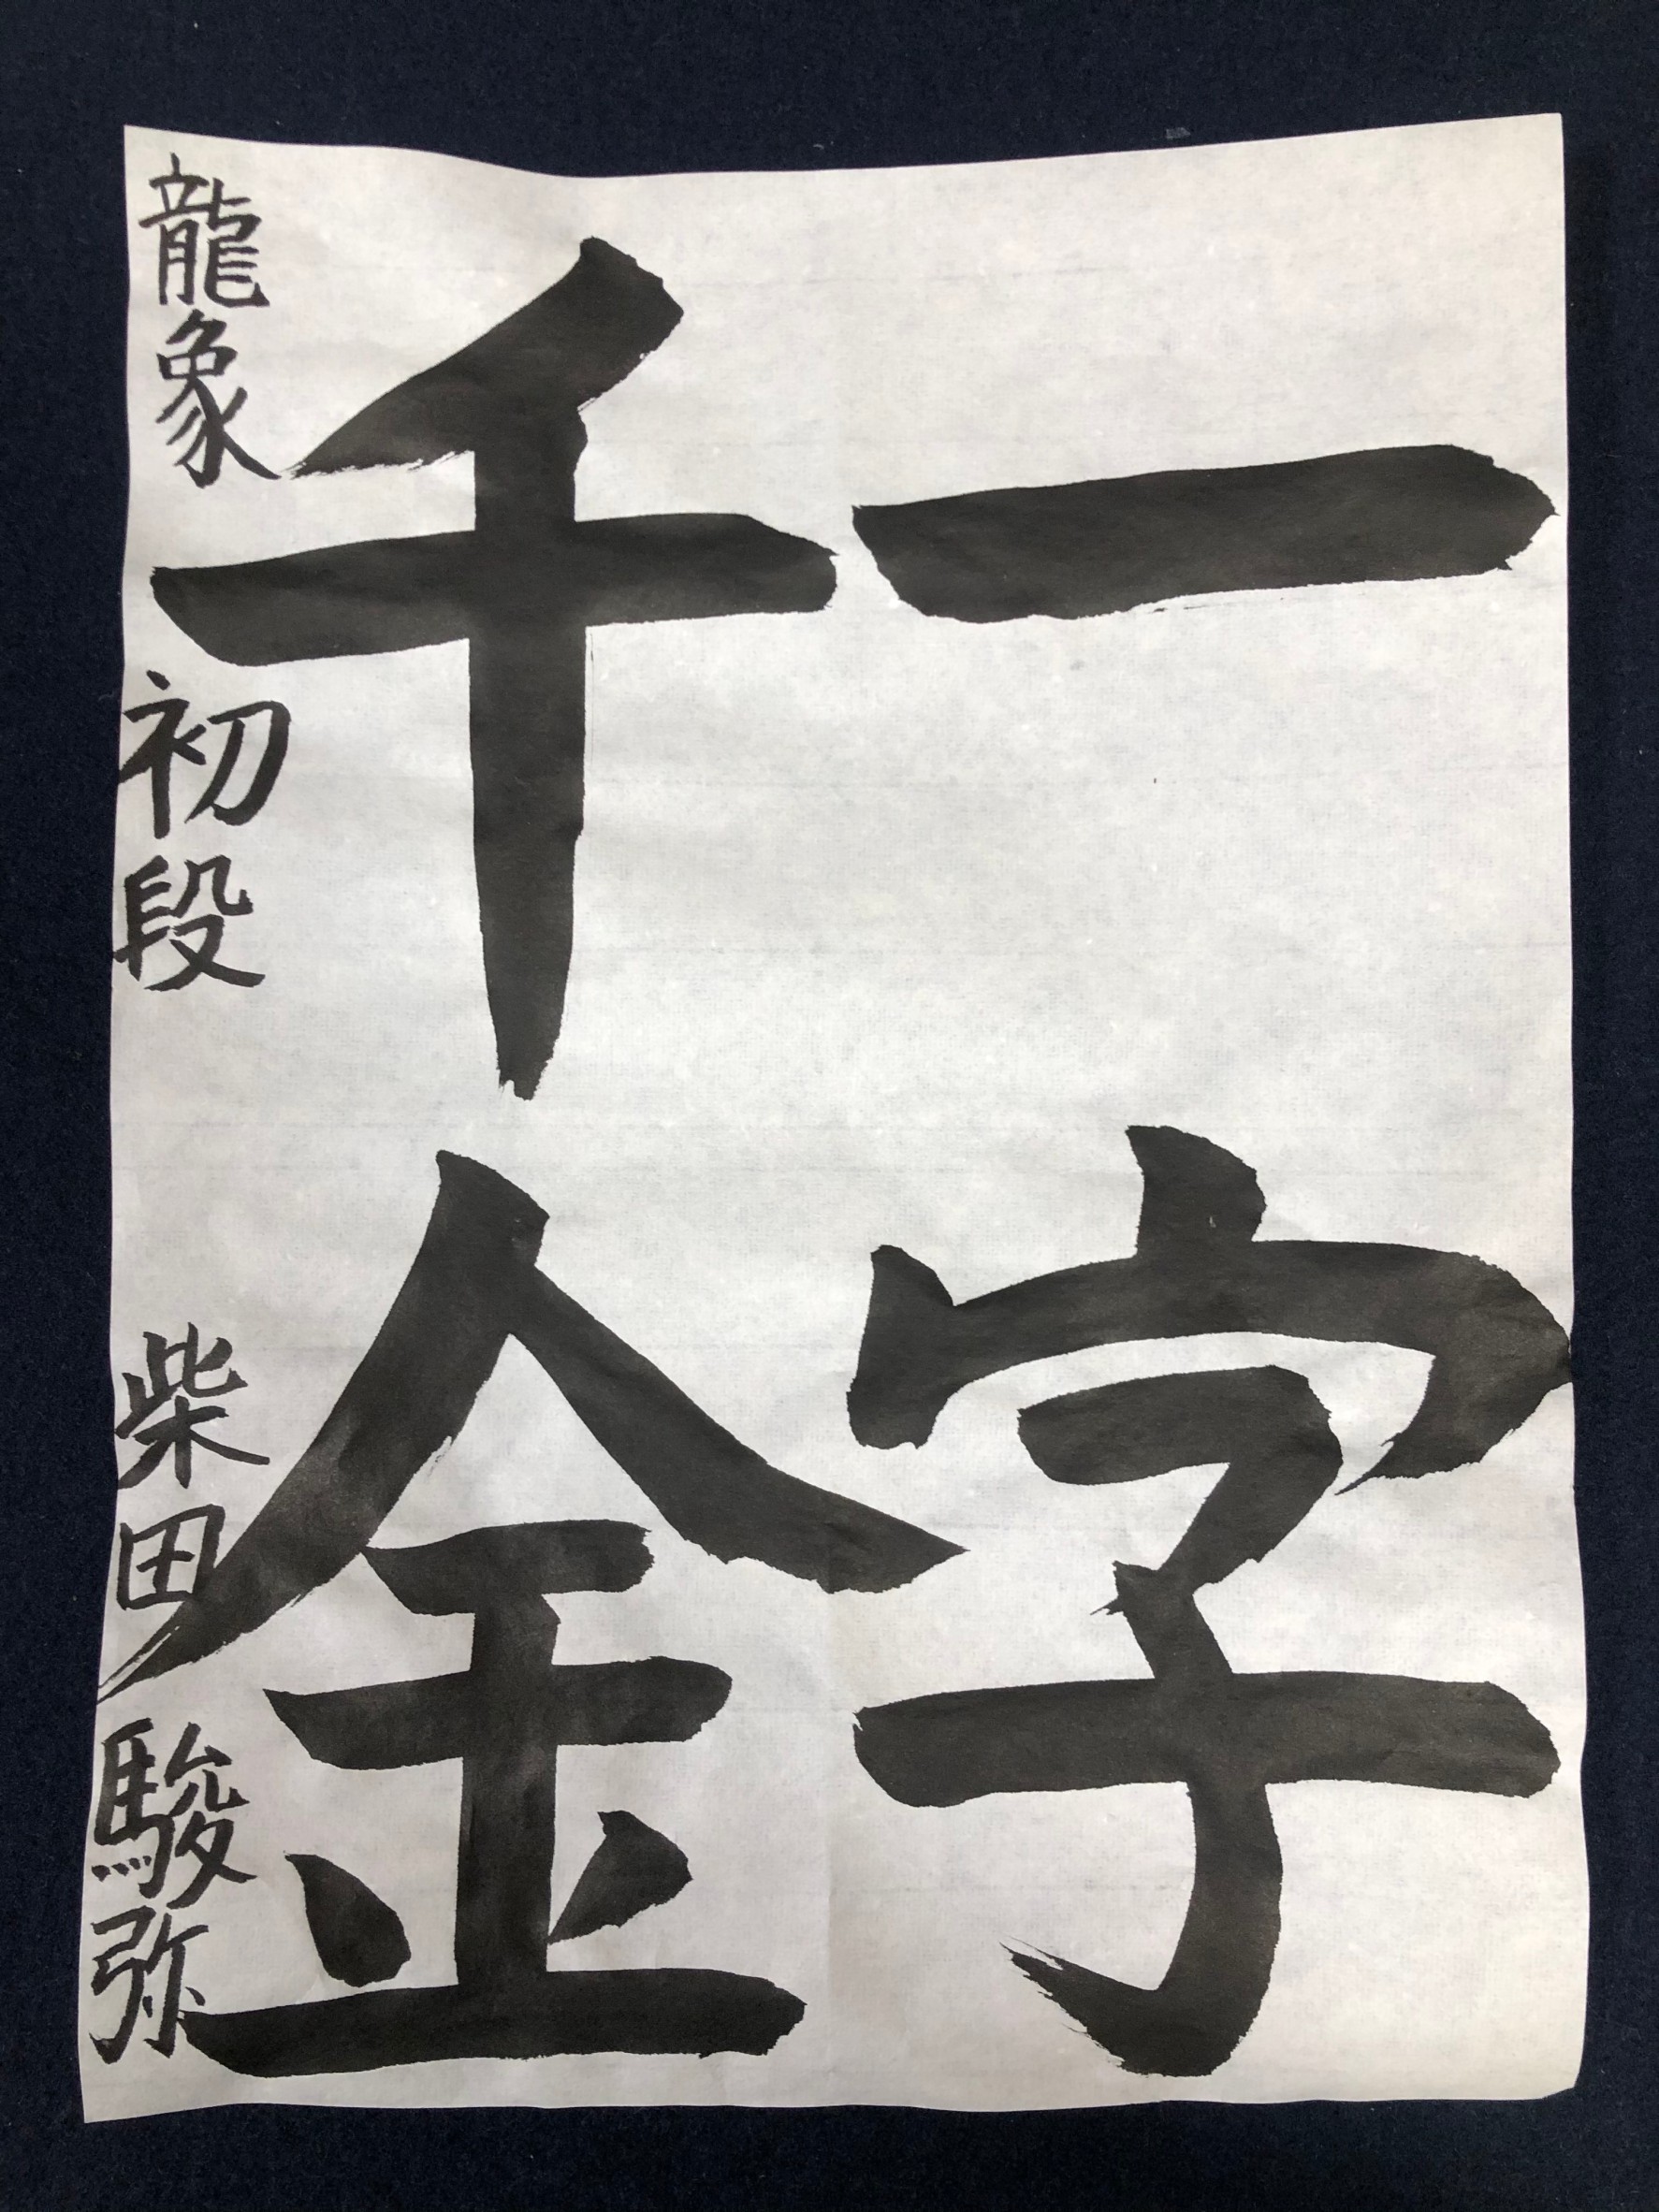 一字
千金
龍象 初段 柴田 駿弥